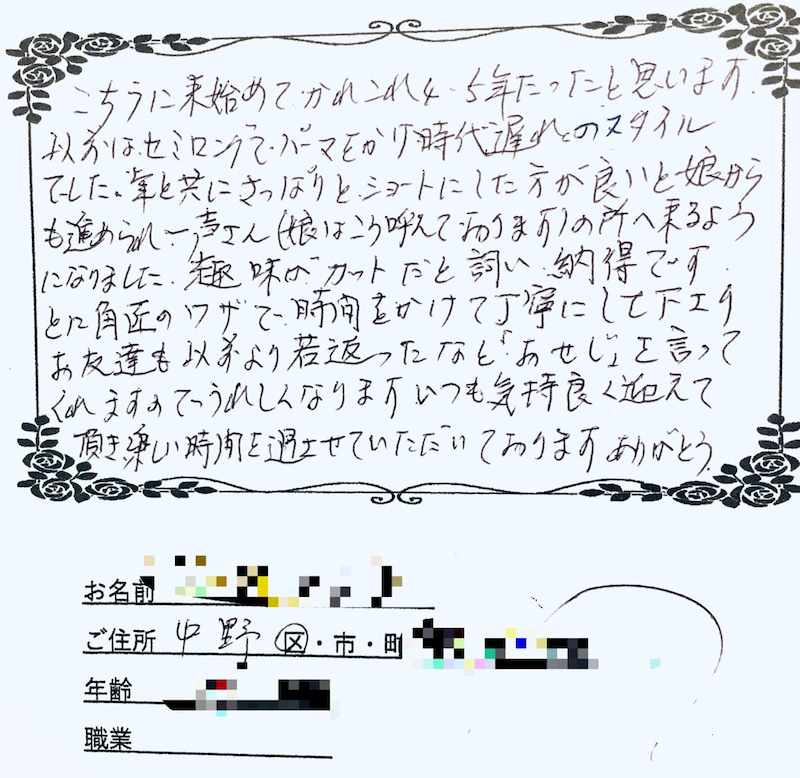 こちらに来始めてかれこれ4・5年たったと思います.
以前はセミロングで、パーマをかけ時代遅れのスタイル
でした。年と共にさっぱりとショートにした方が良いと娘から
も進められ、一声さん(娘はこう呼んでおります)の所へ来るよう
になりました。趣味がカットだと詞い、納得です.
とに角匠のワザで、時間をかけて丁寧にして下さり
お友達も以前より若返ったなど「おせじ」を言って
くれますのでうれしくなります いつも気持良く迎えて
頂き楽しい時間を過させていただいております ありがとう.
お名前
ご住所 中野 区・市・町
年齢
職業